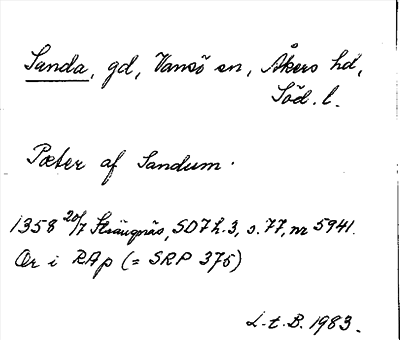 Sanda, gd, Vansö sn, Åkers hd,
Söd. l.
Pæter af Sandum.
1358 20/7 Strängnäs, SD7 h.3, s.77, nr 5941.
Or i RAp (= SRP 375)
L.t.B. 1983.